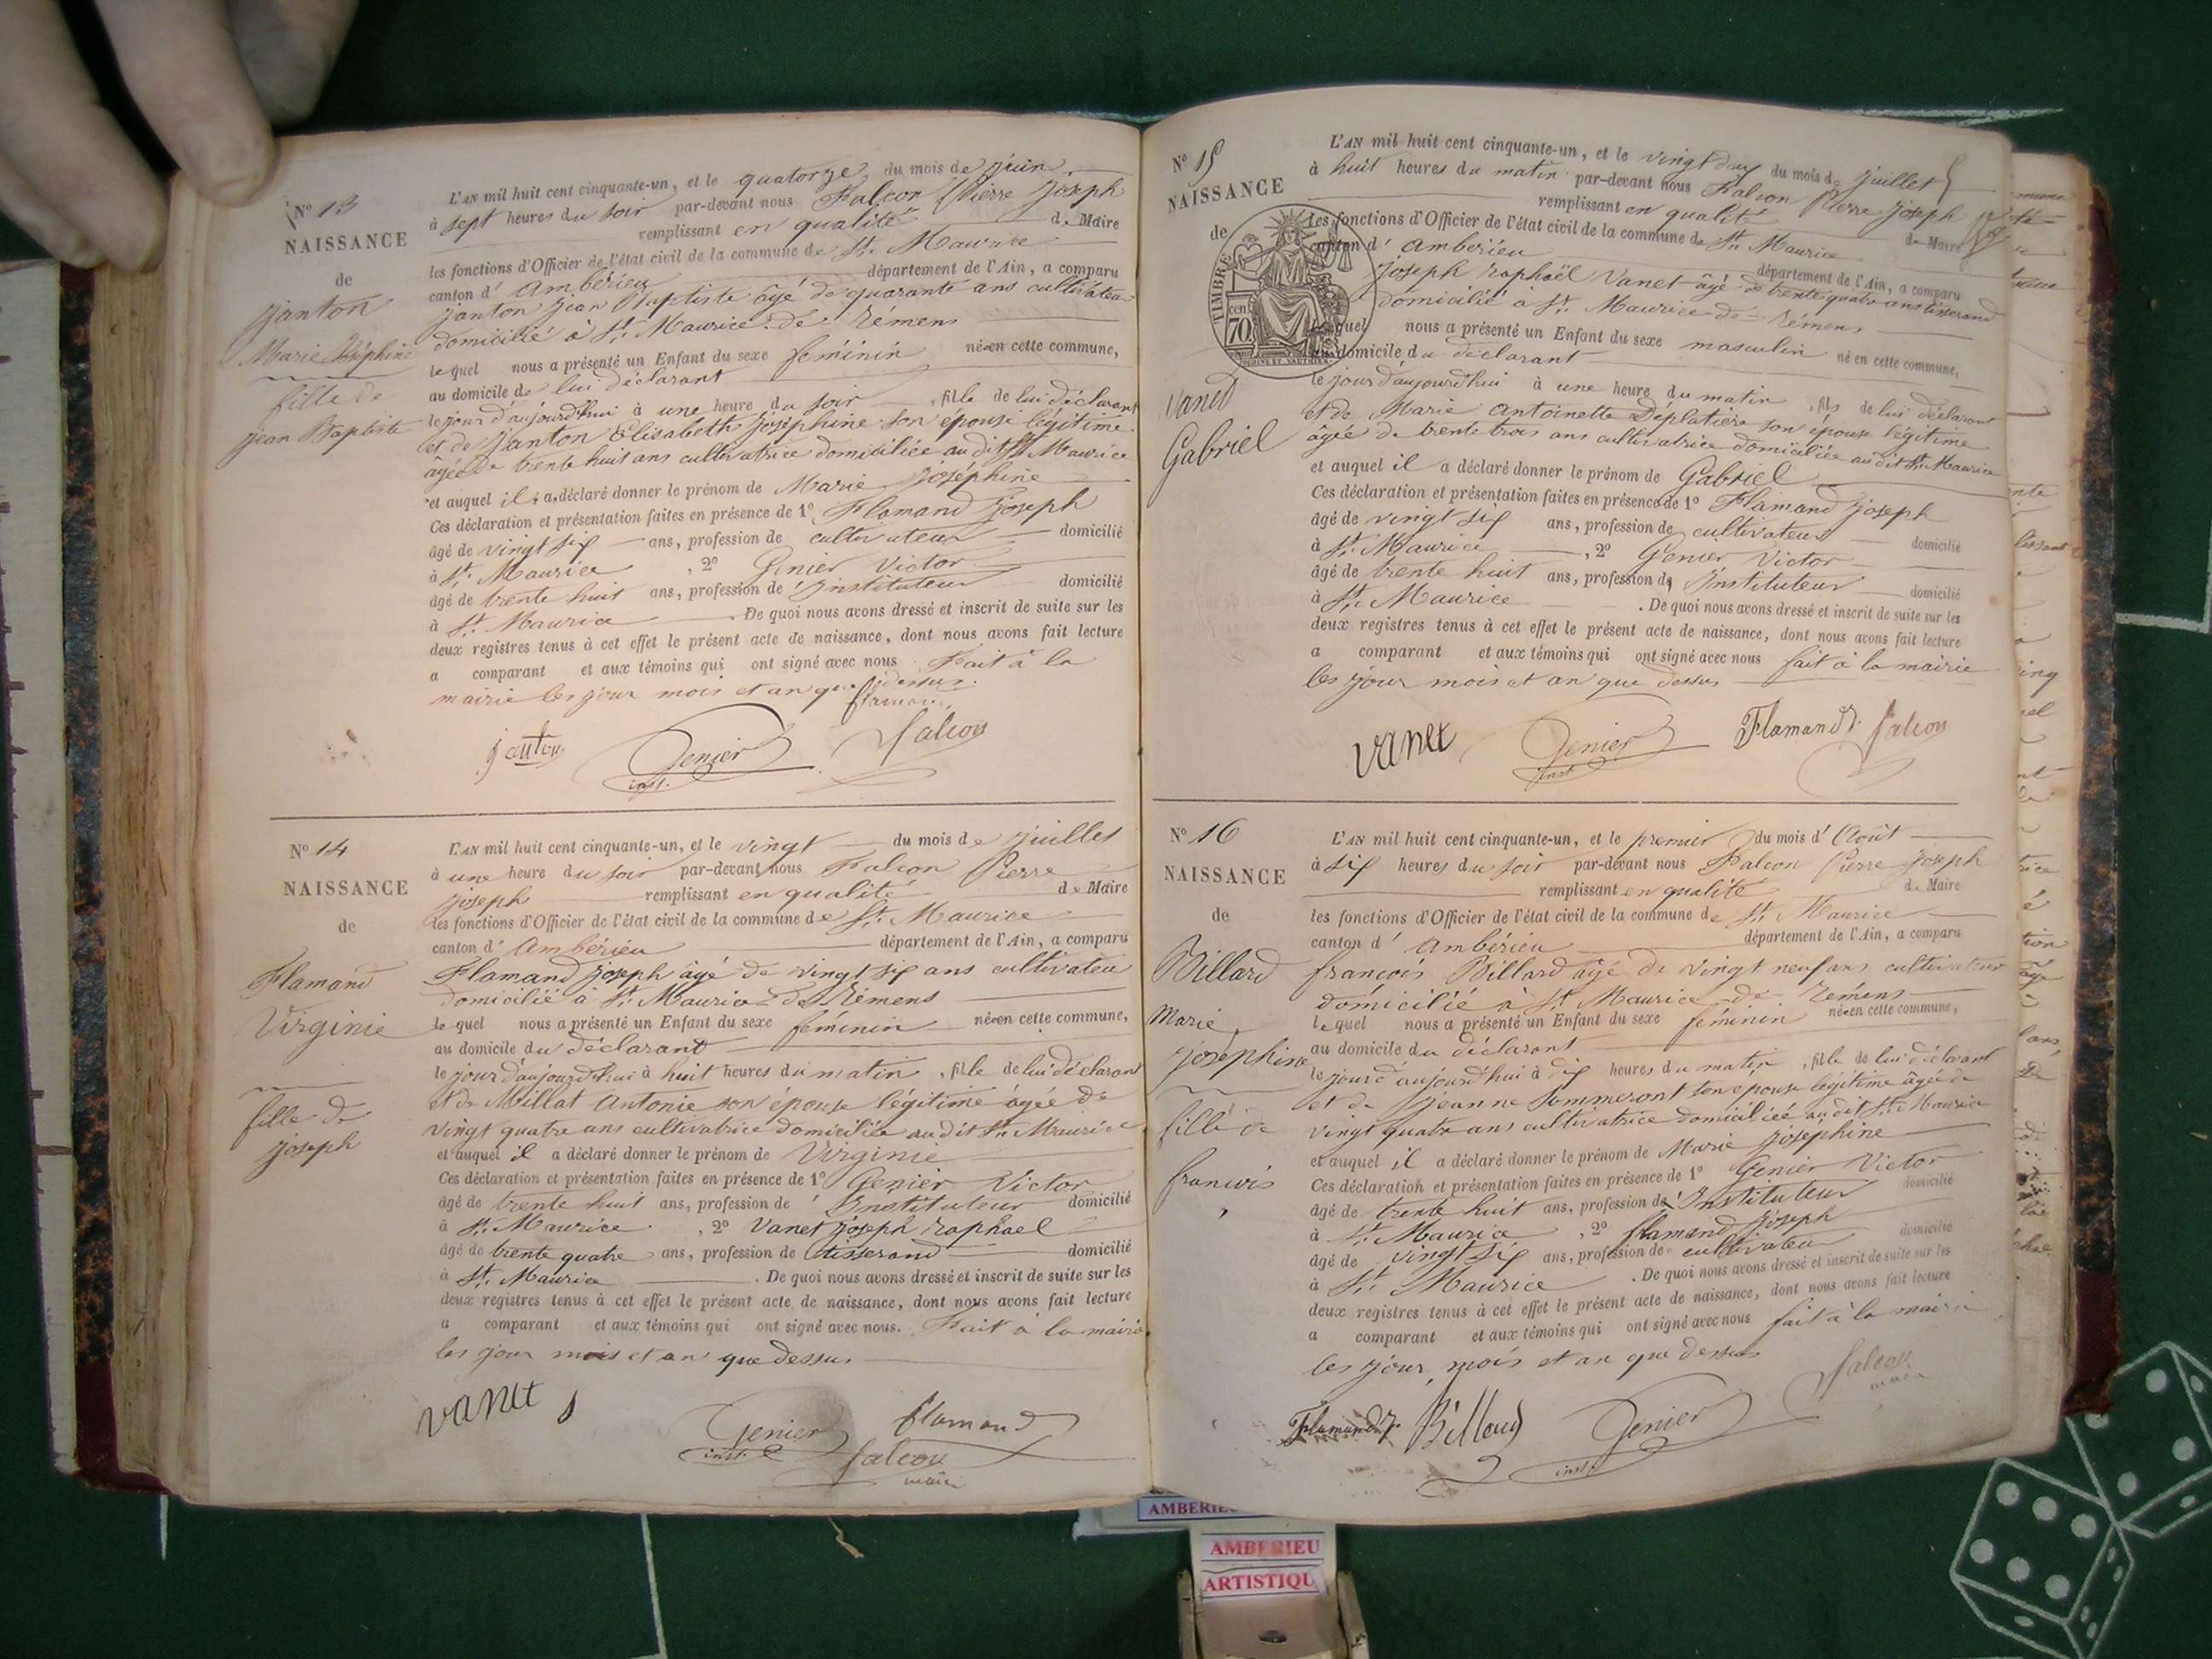 N° 13
NAISSANCE
de
Janton
Marie Joséphine
fille de
jean Baptiste
L'AN mil huit cent cinquante-un, et le quatorze du mois de juin
à sept heures du soir par-devant nous Falcon Pierre Joseph
remplissant en qualité de Maire
les fonctions d'Officier de l'état civil de la commune de St. Maurice
canton d' Ambérieu département de l'Ain, a comparu
Janton Jean Baptiste âgé de quarante ans cultivateur
domicilié à St. Maurice de Rémens
lequel nous a présenté un Enfant du sexe féminin née en cette commune,
au domicile de lui déclarant
le jour d'aujourd'hui à une heure du soir, fille de lui déclarant
et de Janton Elisabeth Joséphine son épouse légitime
âgée de trente huit ans cultivatrice domiciliée au dit St. Maurice
et auquel il a déclaré donner le prénom de Marie Joséphine
Ces déclaration et présentation faites en présence de 1° Flamand Joseph
âgé de vingt six ans, profession de cultivateur domicilié
à St. Maurice, 2° Genier Victor
âgé de trente huit ans, profession de Instituteur domicilié
à St. Maurice. De quoi nous avons dressé et inscrit de suite sur les
deux registres tenus à cet effet le présent acte de naissance, dont nous avons fait lecture
a comparant et aux témoins qui ont signé avec nous Fait à la
mairie les jour mois et an que dessus.
flamand
janton Genier inst. falcon
N° 14
NAISSANCE
de
Flamand
Virginie
fille de
joseph
L'AN mil huit cent cinquante-un, et le vingt du mois de juillet
à une heure du soir par-devant nous Falcon Pierre
joseph remplissant en qualité de Maire
les fonctions d'Officier de l'état civil de la commune de St. Maurice
canton d' Ambérieu département de l'Ain, a comparu
Flamand joseph âgé de vingt six ans cultivateur
domicilié à St. Maurice de Rémens
lequel nous a présenté un Enfant du sexe féminin née en cette commune,
au domicile du déclarant
le jour d'aujourd'hui à huit heures du matin, fille de lui déclarant
et de Millat Antonie son épouse légitime âgée de
vingt quatre ans cultivatrice domiciliée au dit St. Maurice
et auquel il a déclaré donner le prénom de Virginie
Ces déclaration et présentation faites en présence de 1° Genier Victor
âgé de trente huit ans, profession d' Instituteur domicilié
à St. Maurice, 2° Vanet joseph raphael
âgé de trente quatre ans, profession de tisserand domicilié
à St. Maurice. De quoi nous avons dressé et inscrit de suite sur les
deux registres tenus à cet effet le présent acte de naissance, dont nous avons fait lecture
a comparant et aux témoins qui ont signé avec nous. Fait à la mairie
les jour mois et an que dessus
vanet Genier inst. flamand
falcon
maire
N° 15
NAISSANCE
de
TIMBRE
70 cent.
Vanet
Gabriel
L'AN mil huit cent cinquante-un, et le vingt deux du mois de juillet
à huit heures du matin par-devant nous Falcon Pierre joseph
remplissant en qualité de Maire
les fonctions d'Officier de l'état civil de la commune de St. Maurice
canton d' Ambérieu département de l'Ain, a comparu
joseph raphaël Vanet âgé de trente quatre ans tisserand
domicilié à St. Maurice de Rémens
lequel nous a présenté un Enfant du sexe masculin né en cette commune,
au domicile du déclarant
le jour d'aujourd'hui à une heure du matin, fils de lui déclarant
et de Marie Antoinette Déplatière son épouse légitime
âgée de trente trois ans cultivatrice domiciliée au dit St. Maurice
et auquel il a déclaré donner le prénom de Gabriel
Ces déclaration et présentation faites en présence de 1° Flamand joseph
âgé de vingt six ans, profession de cultivateur domicilié
à St. Maurice, 2° Genier Victor
âgé de trente huit ans, profession d' Instituteur domicilié
à St. Maurice. De quoi nous avons dressé et inscrit de suite sur les
deux registres tenus à cet effet le présent acte de naissance, dont nous avons fait lecture
a comparant et aux témoins qui ont signé avec nous fait à la mairie
les jour mois et an que dessus
vanet Genier inst. Flamand j. falcon
N° 16
NAISSANCE
de
Billard
Marie
joséphine
fille de
francois
L'AN mil huit cent cinquante-un, et le premier du mois d' Août
à six heures du soir par-devant nous Falcon Pierre joseph
remplissant en qualité de Maire
les fonctions d'Officier de l'état civil de la commune de St. Maurice
canton d' Ambérieu département de l'Ain, a comparu
françois Billard âgé de vingt neuf ans cultivateur
domicilié à St. Maurice de Rémens
lequel nous a présenté un Enfant du sexe féminin née en cette commune,
au domicile du déclarant
le jour d'aujourd'hui à dix heures du matin, fille de lui déclarant
et de Jeanne Sommeront son épouse légitime âgée de
vingt quatre ans cultivatrice domiciliée au dit St. Maurice
et auquel il a déclaré donner le prénom de Marie joséphine
Ces déclaration et présentation faites en présence de 1° Genier Victor
âgé de trente huit ans, profession d' Instituteur domicilié
à St. Maurice, 2° flamand joseph
âgé de vingt six ans, profession de cultivateur domicilié
à St. Maurice. De quoi nous avons dressé et inscrit de suite sur les
deux registres tenus à cet effet le présent acte de naissance, dont nous avons fait lecture
a comparant et aux témoins qui ont signé avec nous fait à la mairie
les jour, mois et an que dessus
falcon
maire
Flamand j. Billoud Genier inst.
AMBERIEU
AMBERIEU
ARTISTIQU